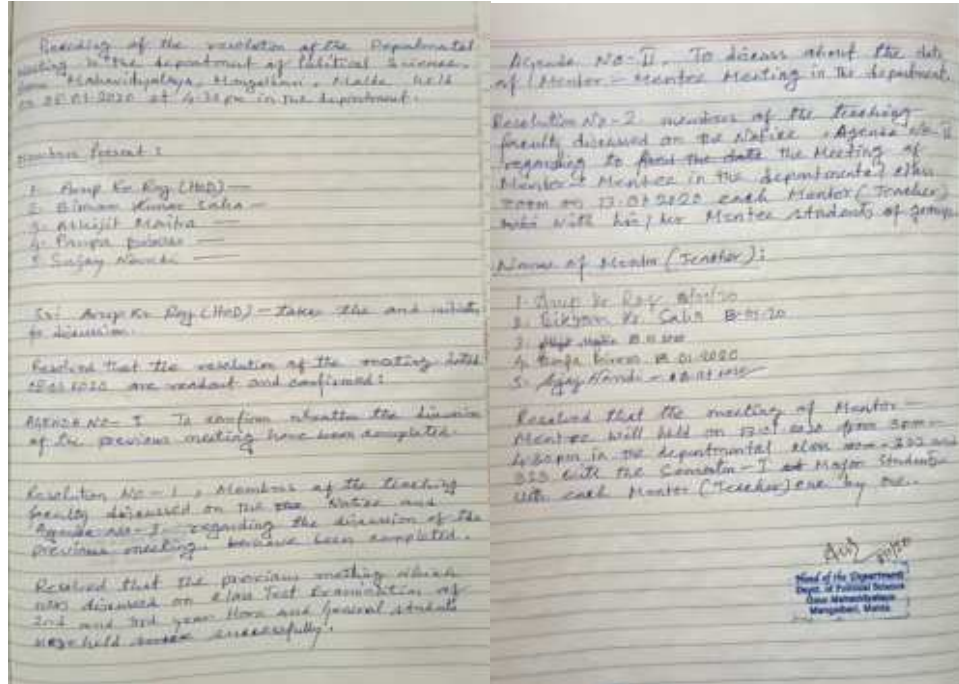 Reading of the resolution of the Departmental
Meeting in the department of Political Science,
Mahavidyalaya, Mangalbari, Malda held
on 2020 at 4:30 pm in the department.
Members Present :
1. Arup Kr Roy (HOD) —
2. Biman Kumar Saha —
3. Abhijit Maitra —
4. Pampa Biswas —
5. Sujay Nandi —
Sri Arup Kr Roy (HOD) — takes the and initiate
to discussion.
Resolved that the resolution of the meeting dated
2020 are readout and confirmed :
AGENDA NO- I To confirm whether the discussion
of the previous meeting have been completed.
Resolution No - 1, Members of the teaching
faculty discussed on the Notice and
Agenda No- I regarding the discussion of the
previous meeting, been completed.
Resolved that the previous meeting which
was discussed on class Test Examination of
2nd and 3rd year Hons and general students
held successfully.
Agenda No- II. To discuss about the date
of Mentor - Mentee Meeting in the department.
Resolution No - 2 members of the teaching
faculty discussed on the Notice, Agenda No- II
regarding to the date the Meeting of
Mentor - Mentee in the departmental class
room on 2020 each Mentor (Teacher)
with his/her Mentee students of group.
Names of Mentor (Teacher) :
1. Arup Kr Roy
2. Kr. Saha
3.
4. Pampa Biswas 2020
5. Nandi -
Resolved that the meeting of Mentor -
Mentee will held on from 3pm -
4:30pm in the departmental class room - 202 and
the Semester - I Major Students
with each Mentor (Teacher) one by one.
Head of the Department
Dept. of Political Science
Gour Mahavidyalaya
Mangalbari, Malda